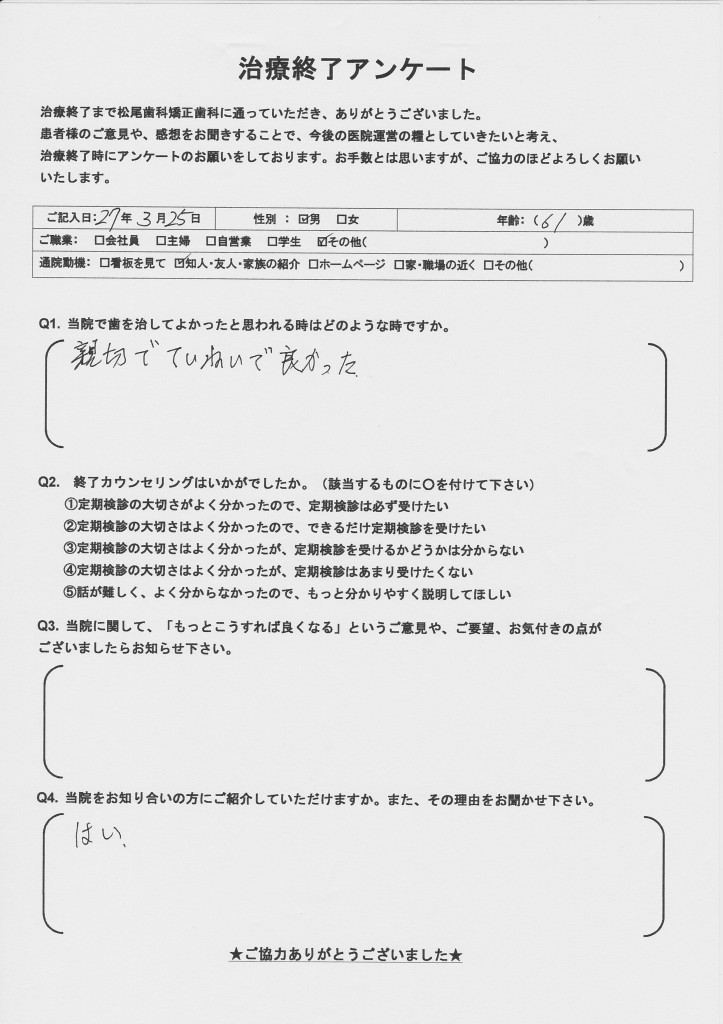 治療終了アンケート
治療終了まで松尾歯科矯正歯科に通っていただき、ありがとうございました。
患者様のご意見や、感想をお聞きすることで、今後の医院運営の糧としていきたいと考え、
治療終了時にアンケートのお願いをしております。お手数とは思いますが、ご協力のほどよろしくお願い
いたします。
ご記入日:27年 3月25日 性別 : ☑男 □女 年齢:( 61 )歳
ご職業: □会社員 □主婦 □自営業 □学生 ☑その他( )
通院動機: □看板を見て ☑知人・友人・家族の紹介 □ホームページ □家・職場の近く □その他( )
Q1. 当院で歯を治してよかったと思われる時はどのような時ですか。
親切でていねいで良かった
Q2. 終了カウンセリングはいかがでしたか。(該当するものに○を付けて下さい)
①定期検診の大切さがよく分かったので、定期検診は必ず受けたい
②定期検診の大切さはよく分かったので、できるだけ定期検診を受けたい
③定期検診の大切さはよく分かったが、定期検診を受けるかどうかは分からない
④定期検診の大切さはよく分かったが、定期検診はあまり受けたくない
⑤話が難しく、よく分からなかったので、もっと分かりやすく説明してほしい
Q3. 当院に関して、「もっとこうすれば良くなる」というご意見や、ご要望、お気付きの点が
ございましたらお知らせ下さい。
Q4. 当院をお知り合いの方にご紹介していただけますか。また、その理由をお聞かせ下さい。
はい、
★ご協力ありがとうございました★